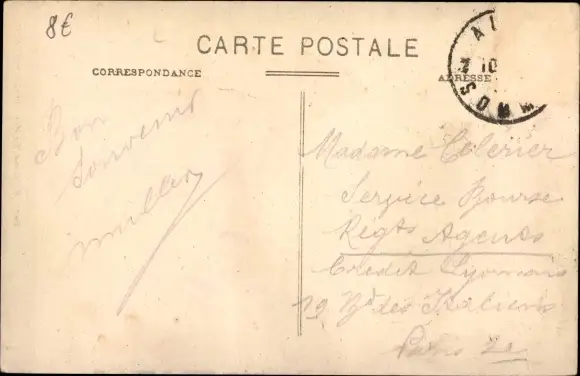 8€
CARTE POSTALE
CORRESPONDANCE
ADRESSE
SOMME
Bon
Souvenir
Müller
Madame
Service Bourse
Régts Agents
Credit Lyonnais
19 Bd des Italiens
Paris 2e